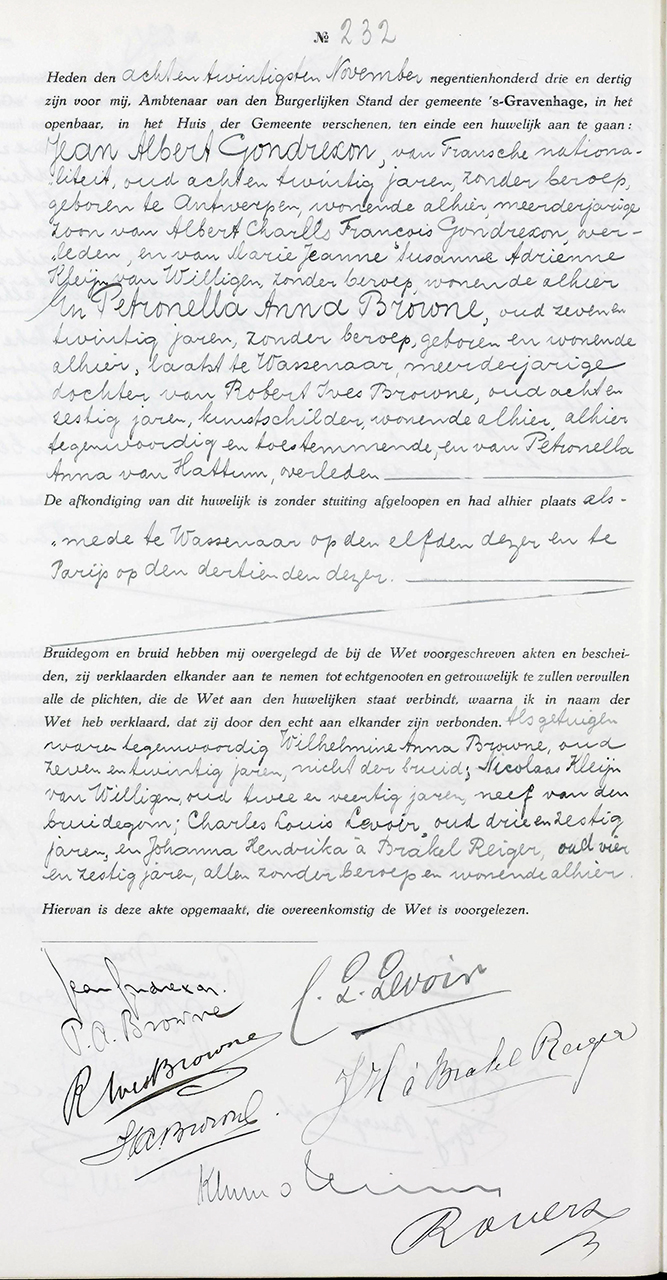 № 232
Heden den achtentwintigsten November negentienhonderd drie en dertig
zijn voor mij, Ambtenaar van den Burgerlijken Stand der gemeente 's-Gravenhage, in het
openbaar, in het Huis der Gemeente verschenen, ten einde een huwelijk aan te gaan:
Jean Albert Gondrexon, van Fransche nationa-
liteit, oud acht en twintig jaren, zonder beroep,
geboren te Antwerpen, wonende alhier, meerderjarige
zoon van Albert Charles François Gondrexon, over-
leden, en van Marie Jeanne Susanne Adrienne
Kleijn van Willigen, zonder beroep, wonende alhier
En Petronella Anna Browne, oud zeven en
twintig jaren, zonder beroep, geboren en wonende
alhier, laatst te Wassenaar, meerderjarige
dochter van Robert Ives Browne, oud acht en
zestig jaren, kunstschilder, wonende alhier, alhier
tegenwoordig en toestemmende, en van Petronella
Anna van Hattum, overleden
De afkondiging van dit huwelijk is zonder stuiting afgeloopen en had alhier plaats als-
mede te Wassenaar op den elfden dezer en te
Parijs op den dertienden dezer.
Bruidegom en bruid hebben mij overgelegd de bij de Wet voorgeschreven akten en beschei-
den, zij verklaarden elkander aan te nemen tot echtgenooten en getrouwelijk te zullen vervullen
alle de plichten, die de Wet aan den huwelijken staat verbindt, waarna ik in naam der
Wet heb verklaard, dat zij door den echt aan elkander zijn verbonden. Als getuigen
waren tegenwoordig Wilhelmine Anna Browne, oud
zeven en twintig jaren, nicht der bruid; Nicolaas Kleijn
van Willigen, oud twee en veertig jaren, neef van den
bruidegom; Charles Louis Levoir, oud drie en zestig
jaren, en Johanna Hendrika à Brakel Reiger, oud vier
en zestig jaren, allen zonder beroep en wonende alhier.
Hiervan is deze akte opgemaakt, die overeenkomstig de Wet is voorgelezen.
Jean Gondrexon.
C. L. Levoir
P. A. Browne
R Ives Browne
J H à Brakel Reiger
A. Browne.
Rovers